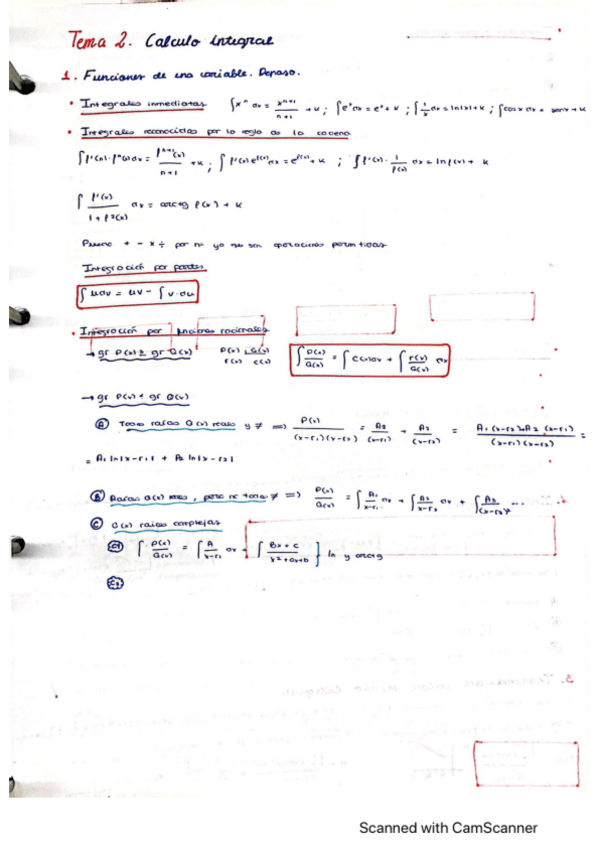 Tema 2. Calculo integral
1. Funciones de una variable. Repaso.
• Integrales inmediatas ∫x^n dx = x^(n+1)/(n+1) + K ; ∫e^x dx = e^x + K ; ∫1/x dx = ln|x| + K ; ∫cos x dx = sen x + K
• Integrales reconocidas por la regla de la cadena
∫f'(x)·f^n(x) dx = f^(n+1)(x)/(n+1) + K ; ∫f'(x) e^(f(x)) dx = e^(f(x)) + K ; ∫f'(x)· 1/f(x) dx = ln f(x) + K
∫ f'(x)/(1+f²(x)) dx = arctg f(x) + K
+ - x ÷ por nº ya que son operaciones permitidas
Integración por partes
∫u dv = uv - ∫v·du
• Integración por funciones racionales
→ gr P(x) ≥ gr Q(x) P(x) Q(x) ∫P(x)/Q(x) = ∫C(x) dx + ∫r(x)/Q(x) dx
r(x) c(x)
→ gr P(x) < gr Q(x)
A Todas raíces Q(x) reales y ≠ ⟹ P(x)/((x-r₁)(x-r₂)) = A₁/(x-r₁) + A₂/(x-r₂) = (A₁(x-r₂)+A₂(x-r₁))/((x-r₁)(x-r₂)) =
= A₁ ln|x-r₁| + A₂ ln|x-r₂|
B Raíces Q(x) reales, pero no todas ≠ ⟹ P(x)/Q(x) = ∫A₁/(x-r₁) dx + ∫A₂/(x-r₂) dx + ∫A₃/(x-r₂)² ...
C Q(x) raíces complejas
C1 ∫P(x)/Q(x) = ∫A/(x-r₁) dx + ∫(Bx+c)/(x²+ax+b) } ln y arctg
C2
Scanned with CamScanner